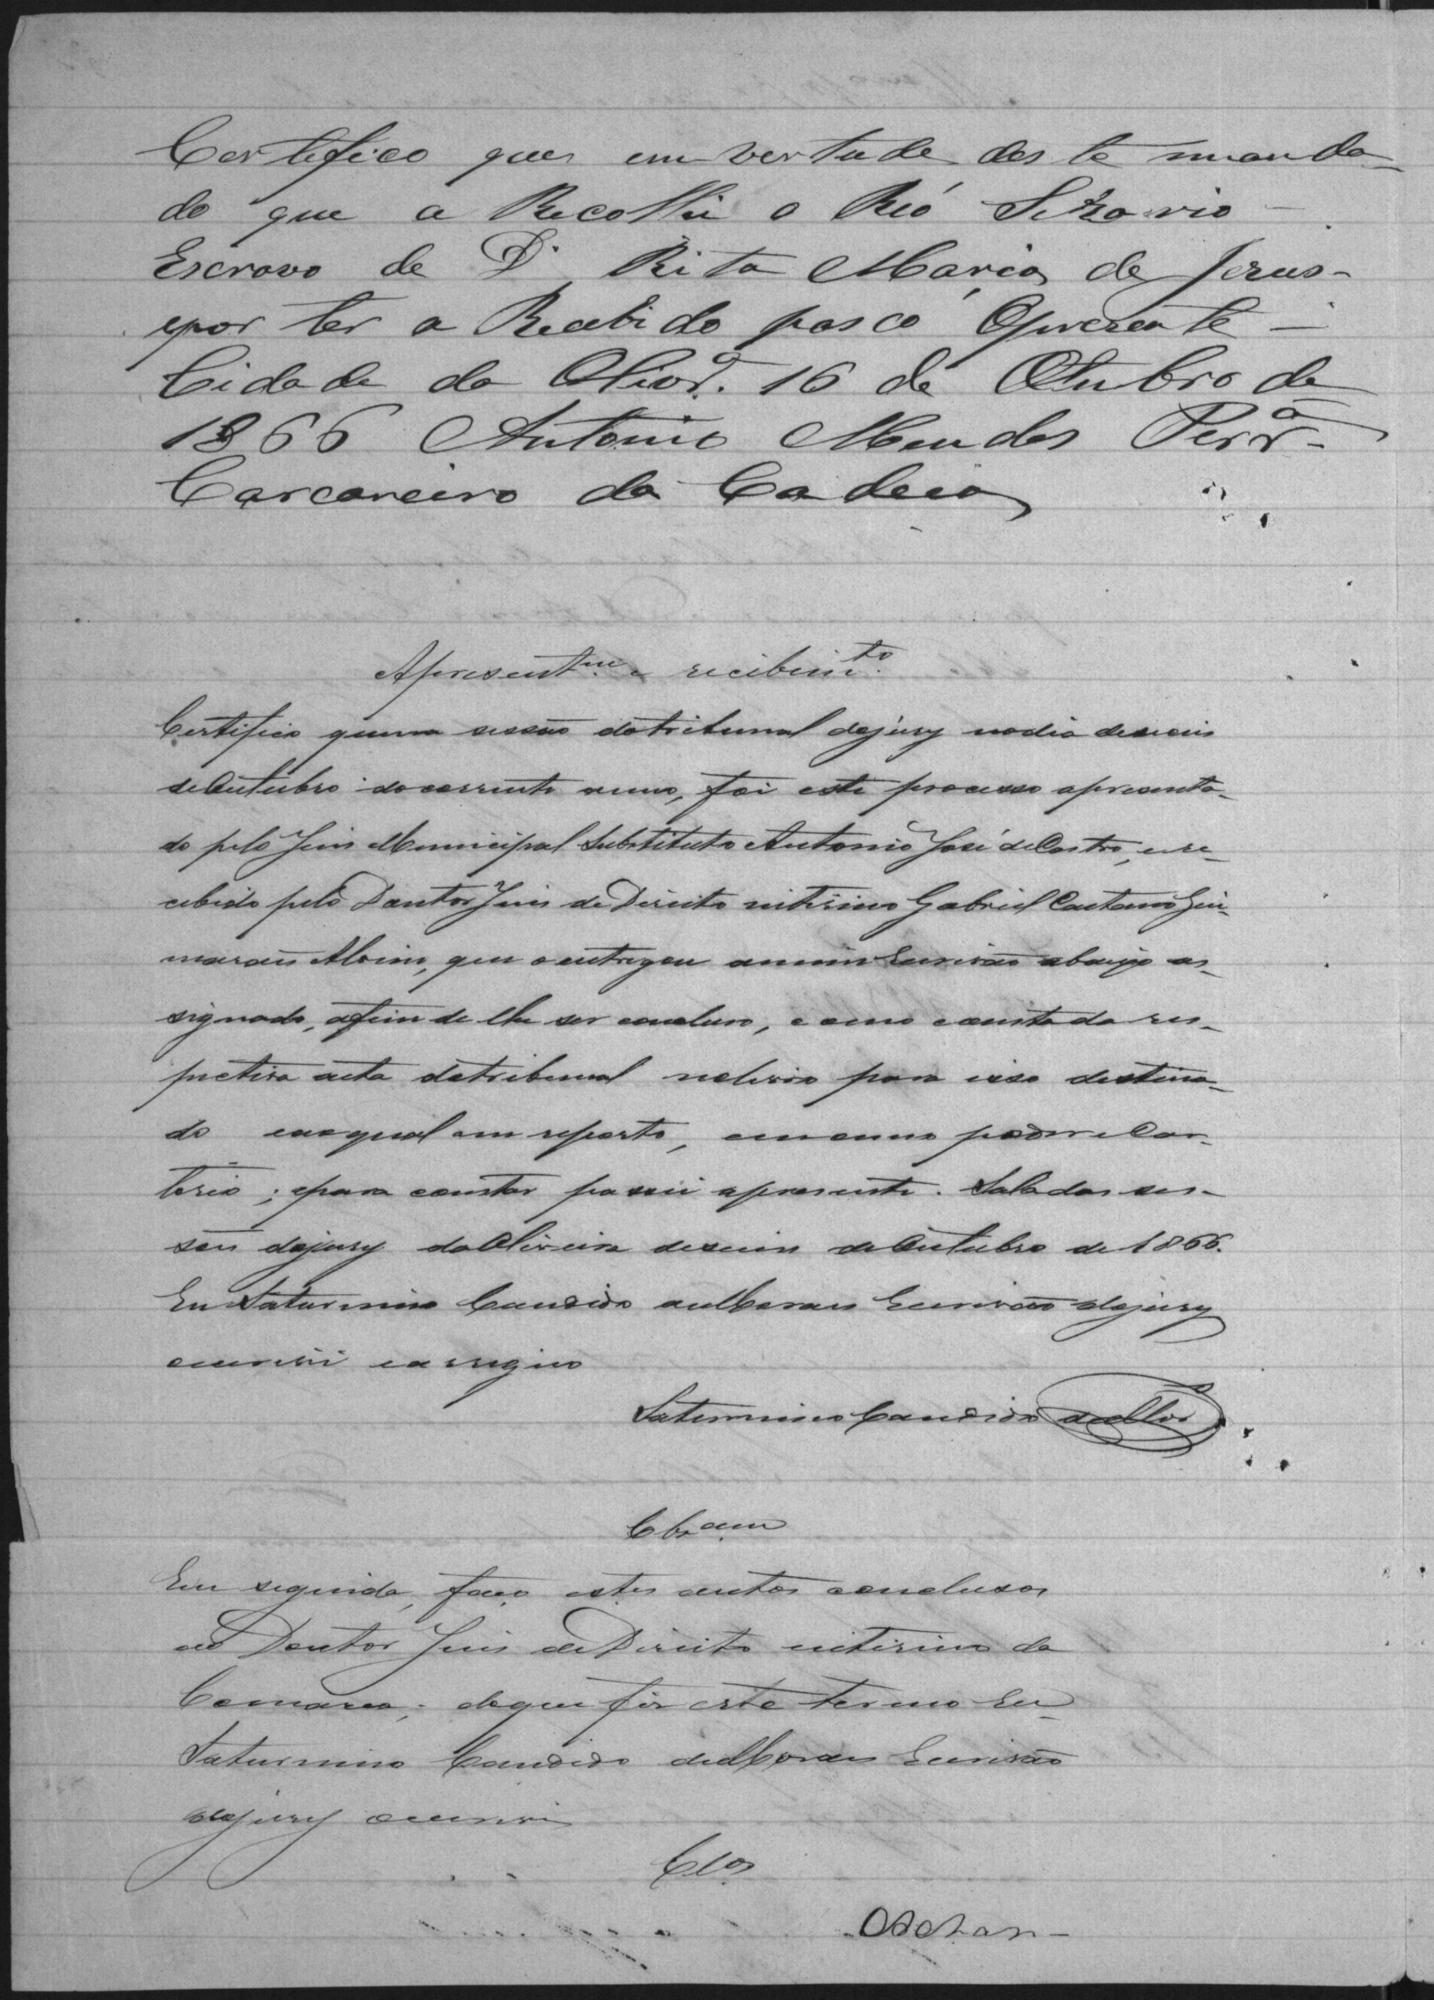 Certefico que em vertude des te manda-
do que a Recolhi o Reó Sezario -
Escravo de D. Rita Maria de Jezus -
epor ter a Recebido pasco Aprezente -
Cidade da Olivrª. 16 de Otubro de
1866 Antonio Mendes Perrª -
Carcareiro da Cadeia
Apresentm.e e recibimto.
Certifico que na sessão do tribunal do jury no dia deseseis
de Outubro do corrente anno, foi este processo apresenta-
do pelo Juis Municipal Substituto Antonio José de Castro, e re-
cebido pelo Doutor Juis de Direito interino Gabriel Caetano Gui-
marães Alvim, que o entregou a mim Escrivão abaixo as-
signado, afim de lhe ser concluso, e como consta da res-
pectiva acta do tribunal no livro para isso destina-
do ao qual me reporto, em meu poder e Car-
torio; e para constar passei a presente. Sala das ses-
soes do jury da Oliveira deseseis de Outubro de 1866.
Eu Saturnino Candido de Moraes Escrivão do jury
o escrevi e assigno
Saturnino Candido de Mor
Clsam
Em seguida, faço estes autos conclusos
ao Doutor Juis de Direito interino da
Comarca; do que fis este termo Eu
Saturnino Candido de Moraes Escrivão
do jury o escrevi
Clos